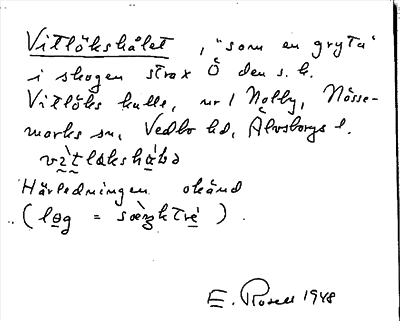 Vitlökshålet, "som en gryta"
i skogen strax Ö den s. k.
Vitlöks kulle, nr 1 Nolby, Nösse-
marks sn, Vedbo hd, Älvsborgs l.
Härledningen okänd
( = )
E. Rosell 1948